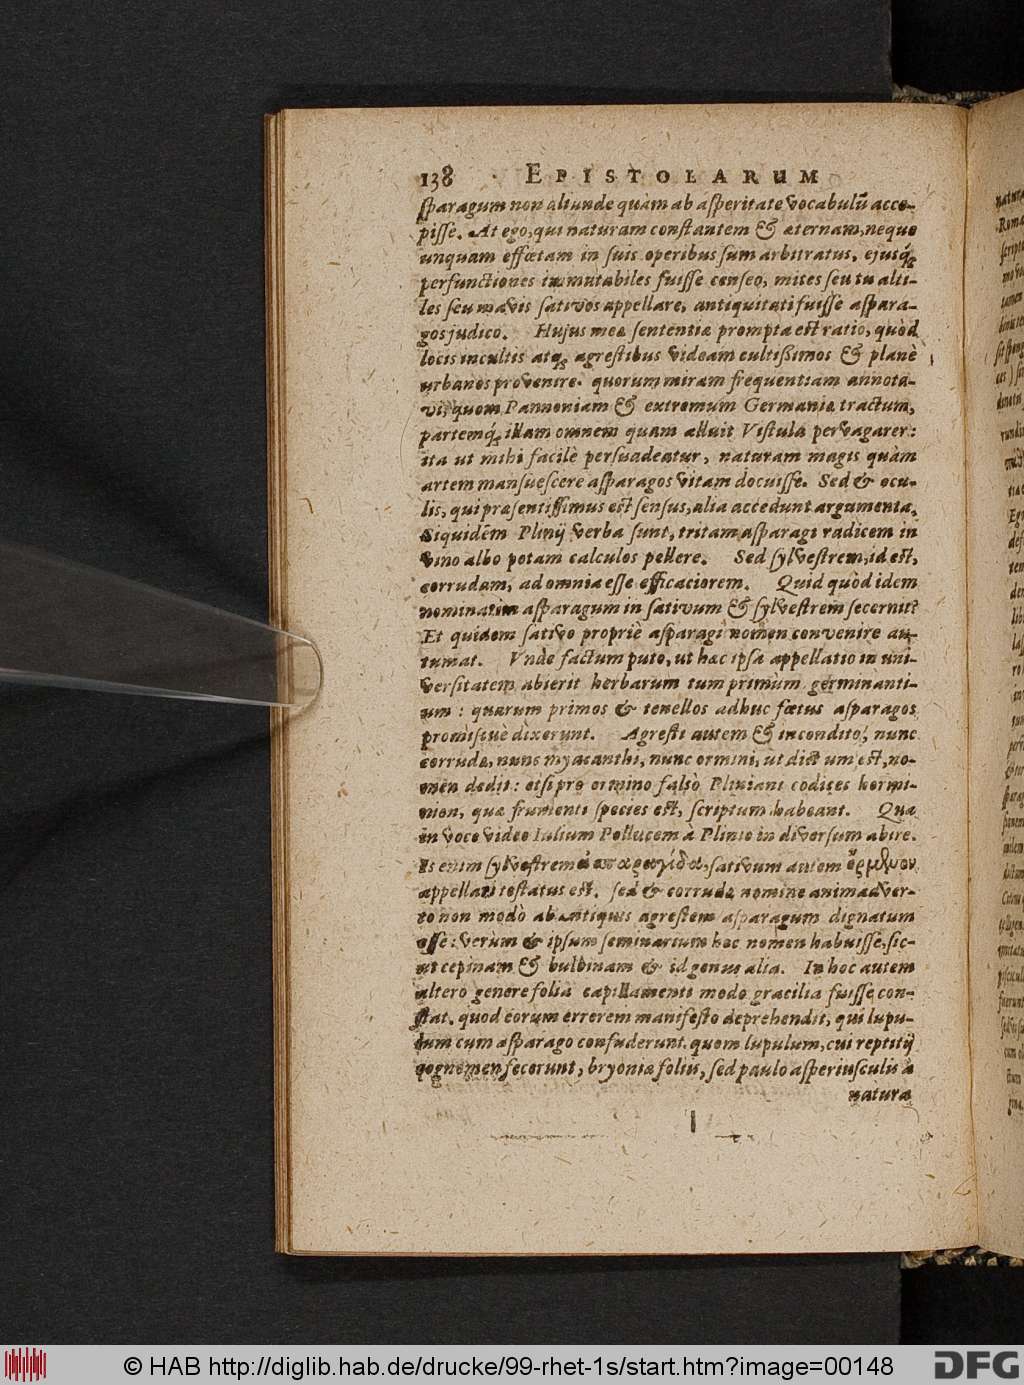 138 EPISTOLARUM
sparagum non aliunde quàm ab asperitate vocabulũ acce-
pisse. At ego, qui naturam constantem & æternam, neque
unquam effœtam in suis operibus sum arbitratus, ejusq́;
perfunctiones immutabiles fuisse censeo, mites seu tu alti-
les seu mavis sativos appellare, antiquitati fuisse aspara-
gos judico. Hujus meæ sententiæ prompta est ratio, quòd
locis incultis atq; agrestibus videam cultißimos & planè
urbanos provenire. quorum miram frequentiam annota-
vi, quom Pannoniam & extremum Germaniæ tractum,
partemq́; illam omnem quam alluit Vistula pervagarer:
ita ut mihi facilè persuadeatur, naturam magis quàm
artem mansuescere asparagos vitam docuisse. Sed & ocu-
lis, qui præsentissimus est sensus, alia accedunt argumenta.
Siquidem Plinij verba sunt, tritam asparagi radicem in
vino albo potam calculos pellere. Sed sylvestrem, id est,
corrudam, ad omnia esse efficaciorem. Quid quòd idem
nominatim asparagum in sativum & sylvestrem secernit?
Et quidem sativo propriè asparagi nomen convenire au-
tumat. Vnde factum puto, ut hæc ipsa appellatio in uni-
versitatem abierit herbarum tum primùm germinanti-
um : quarum primos & tenellos adhuc fœtus asparagos
promiscuè dixerunt. Agresti autem & incondito, nunc
corrudæ, nunc myacanthi, nunc ormini, ut dictum est, no-
men dedit : etsi pro ormino falsò Pliniani codices hormi-
nion, quæ frumenti species est, scriptum habeant. Qua
in voce video Iulium Pollucem à Plinio in diversum abire.
Is enim sylvestrem ἀσπαραγίδα, sativum autem ὄρμινον
appellari testatus est. sed & corrudæ nomine animadver-
to non modò ab antiquis agrestem asparagum dignatum
esse : verùm & ipsum seminarium hoc nomen habuisse, sic-
ut cepinam & bulbinam & id genus alia. In hoc autem
altero genere folia capillamenti modo gracilia fuisse con-
stat. quod eorum errorem manifesto deprehendit, qui lupu-
lum cum asparago confuderunt. quom lupulum, cui reptitij
cognomen fecerunt, bryoniæ foliis, sed paulo asperiusculis à
natura
© HAB http://diglib.hab.de/drucke/99-rhet-1s/start.htm?image=00148
DFG